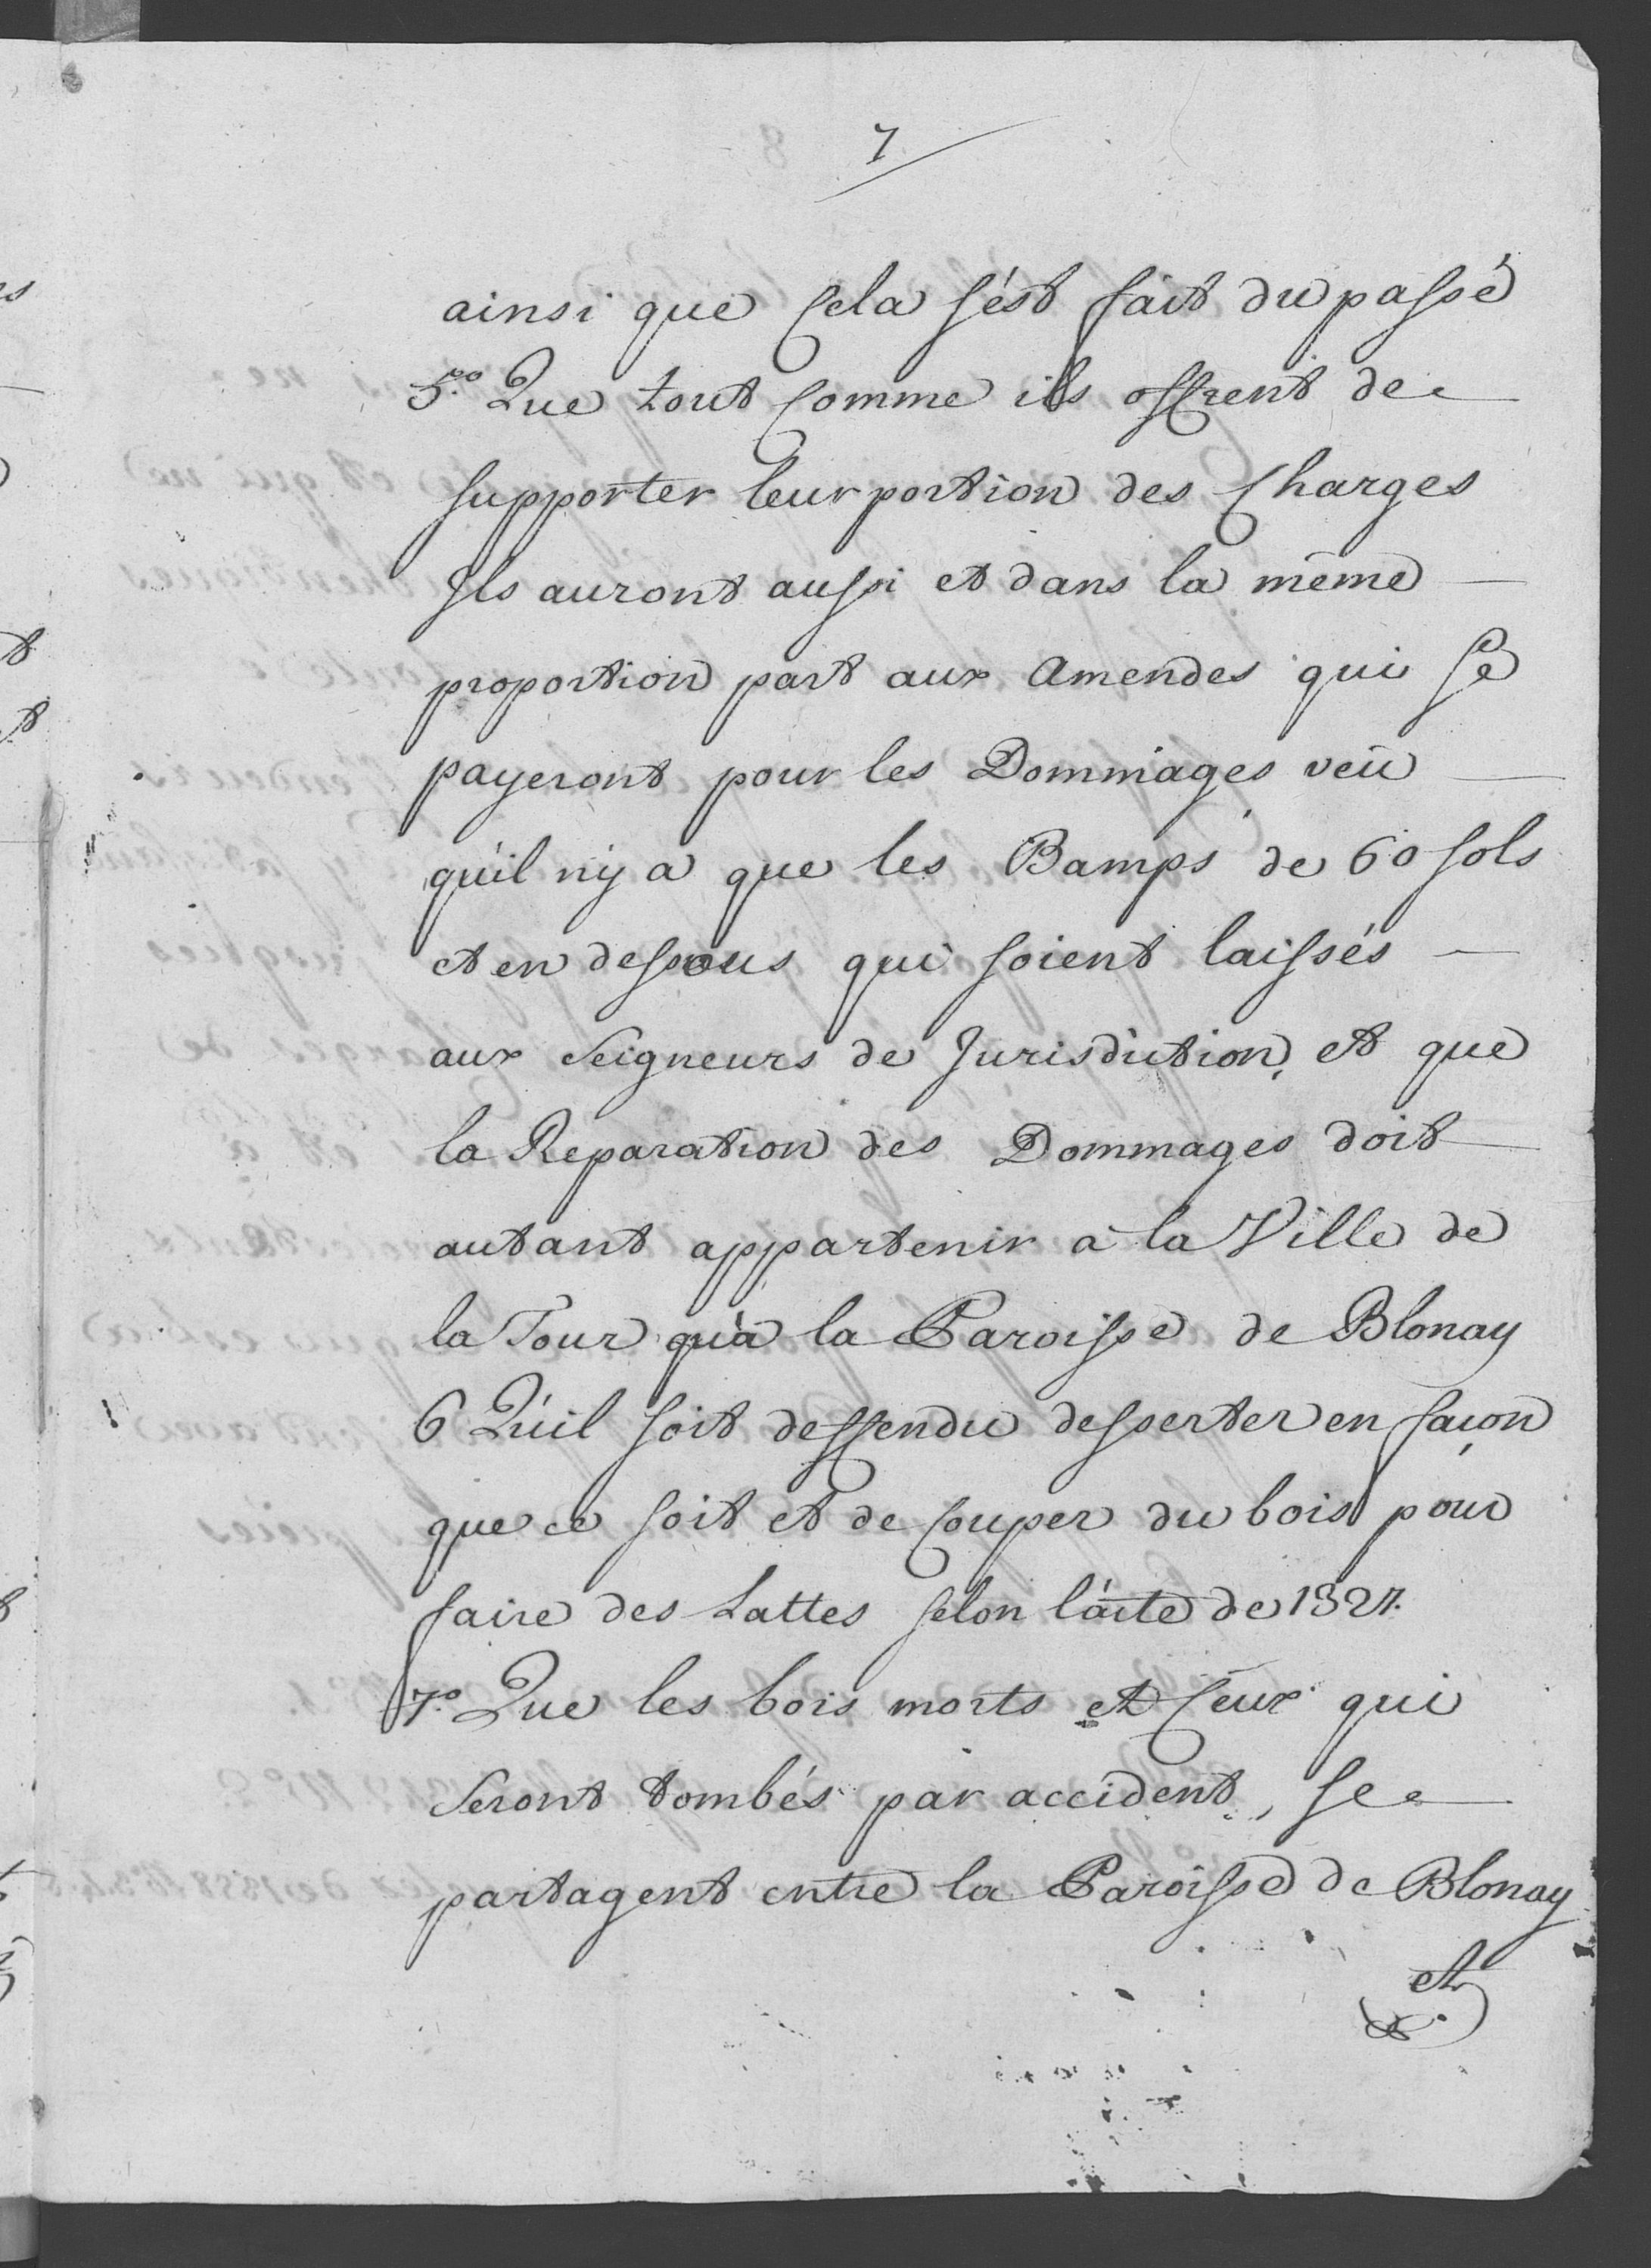 7
ainsi que Cela s'ést fait du passé
5.º Que tout Comme ils offrent de
supporter leur portion des Charges
Ils auront aussi et dans la même
proportion part aux Amendes qui se
payeront pour les Dommages veû
qu'il n'y a que les Bamps de 60 sols
et en dessous qui soient laissés
aux Seigneurs de Jurisdiction, et que
la Reparation des Dommages doit
autant appartenir a la Ville de
la Tour qu'à la Paroisse de Blonay
6 Qu'il soit deffendu desserter en façon
que ce soit et de Couper du bois pour
faire des Lattes selon l'acte de
7.º Que les bois morts et Ceux qui
Seront tombés par accident, se
partagent entre la Paroisse de Blonay
et